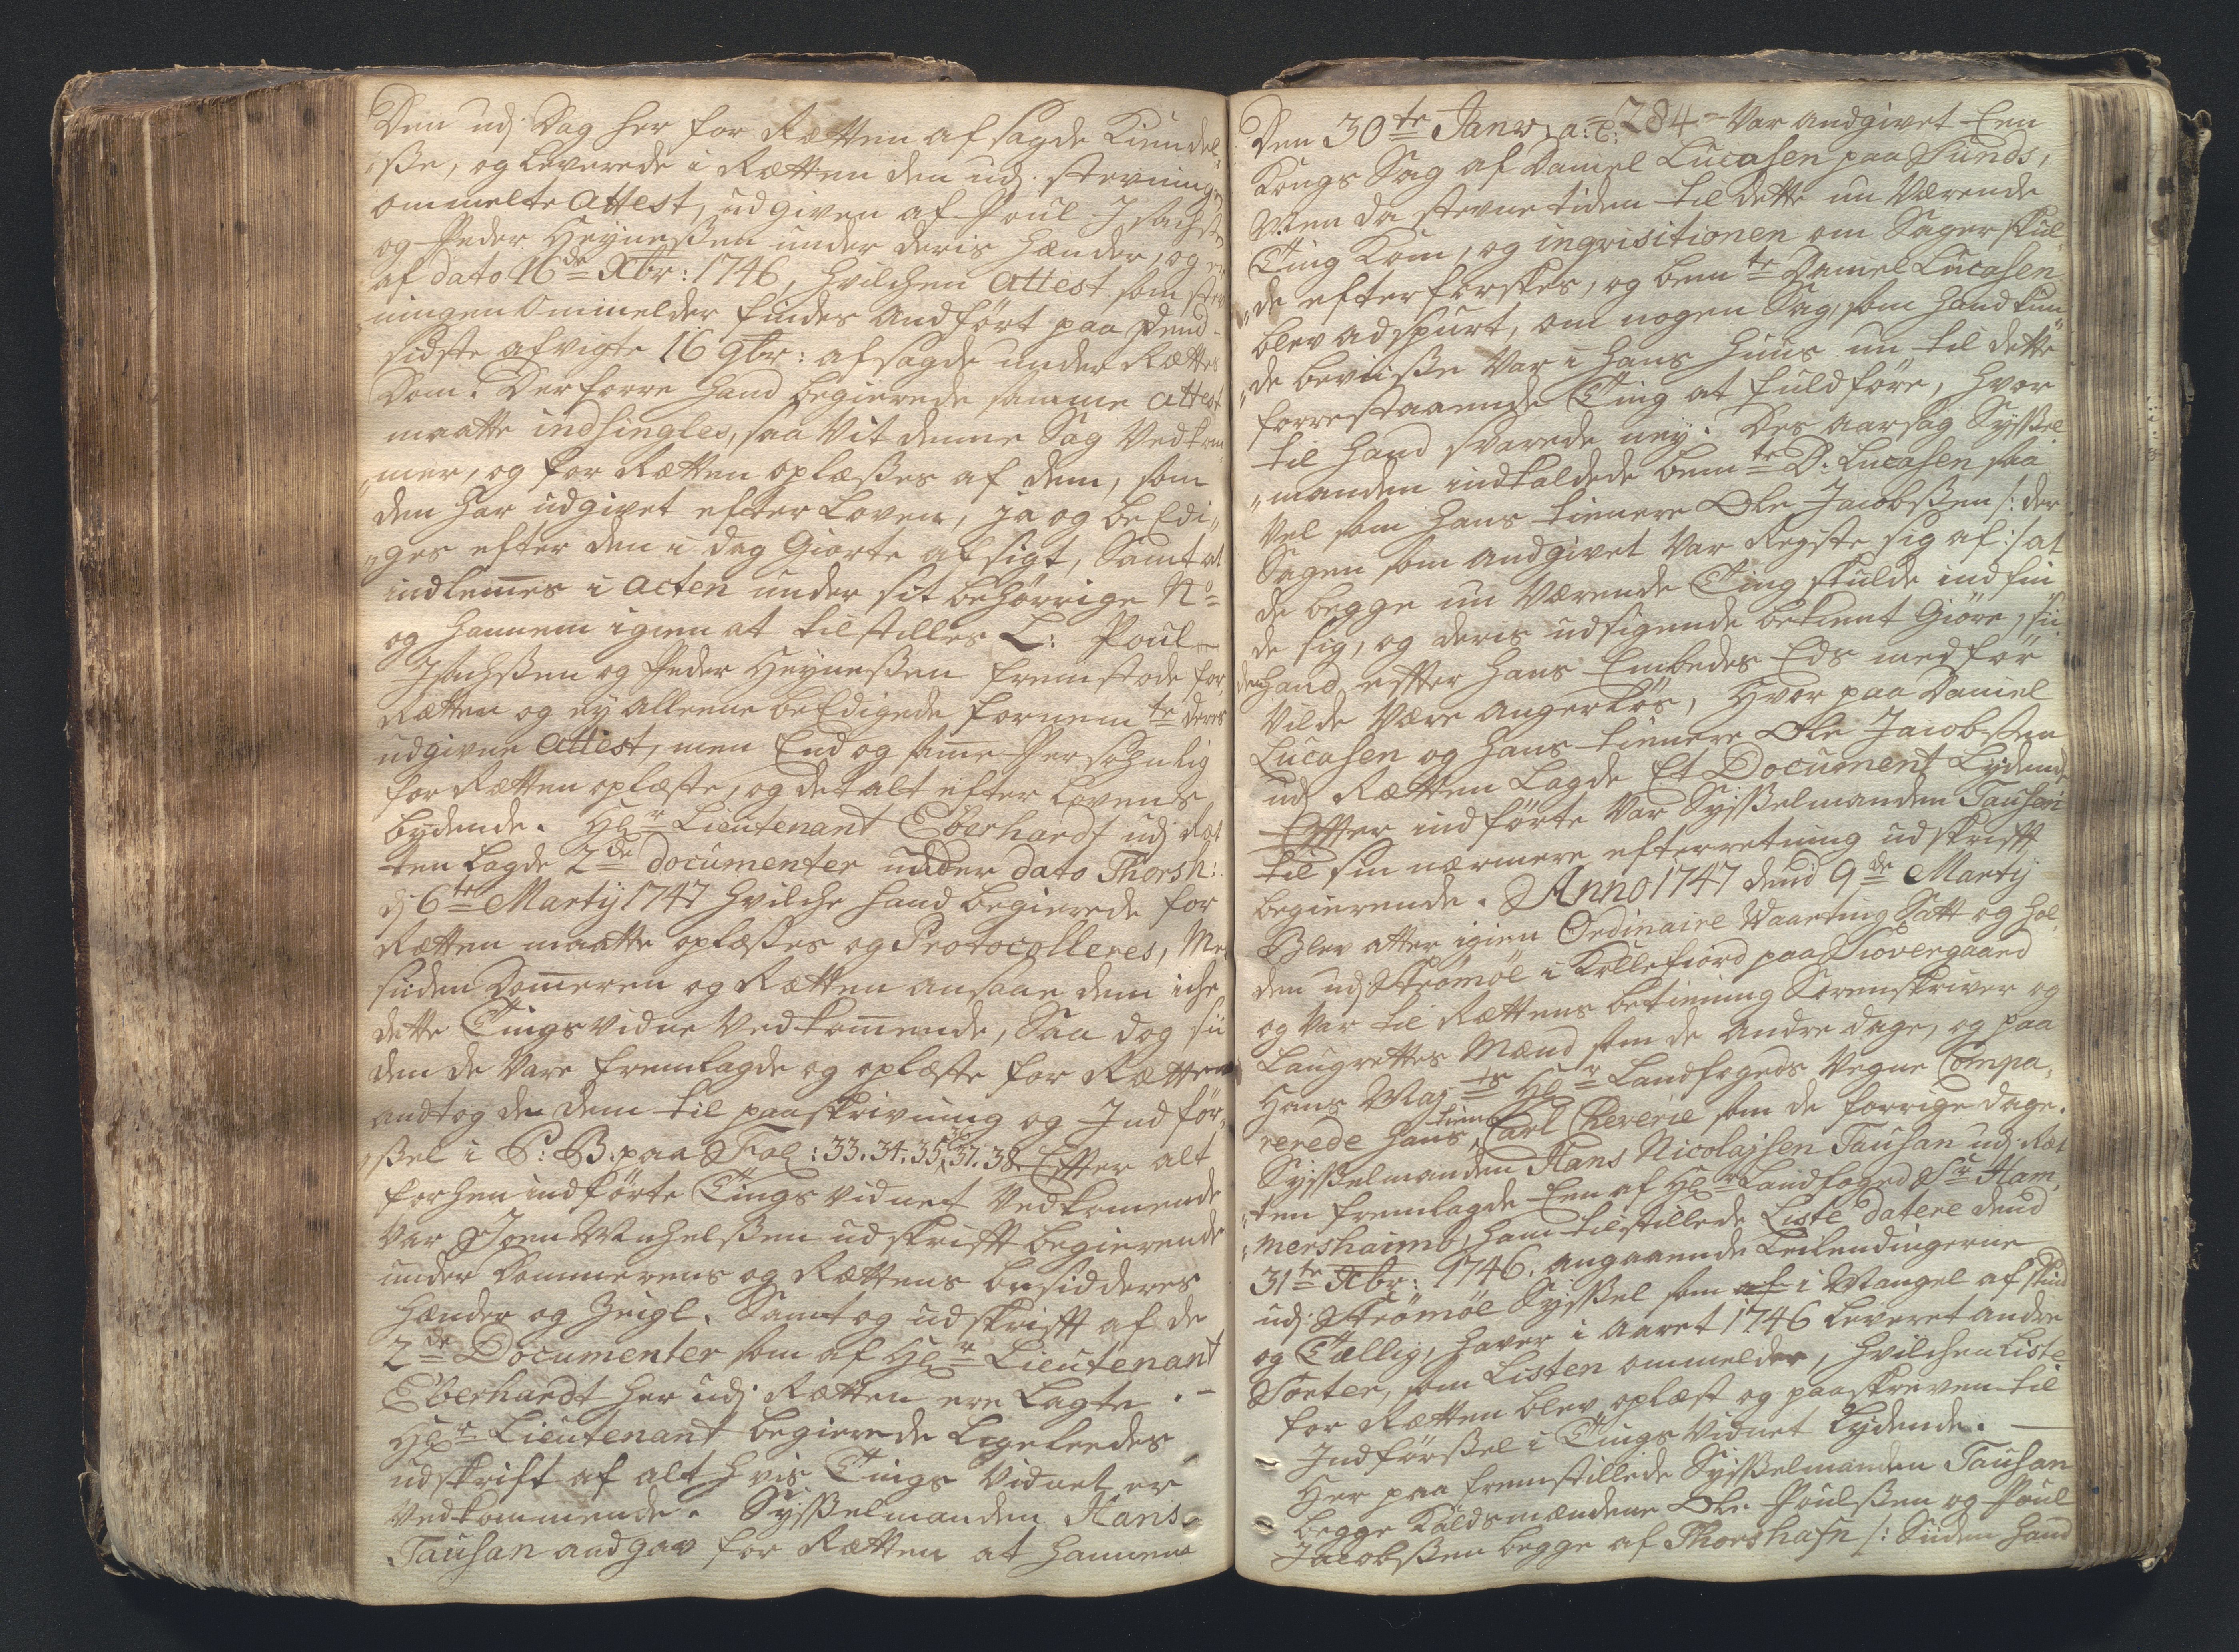 Den udj Dag her for Rætten afsagde Kiendel-
"ße, og leverede i Rætten den udj stevningen
ommelte Attest, udgiven af Poul Isachsen
og Peder Heyneßen under deris Hænder, og er
af dato 16de Xbr: 1746, hvilchen Attest som stev
ningen Ommelder findes Andført paa dend
sidste afvigte 16 9br: afsagde under Rættes
Dom. Derforre hand begierede samme Attest
maatte indhingles, saa Vit denne Sag Vedkom
"mer, og for Rætten oplæßes af dem, som
den har udgivet efter Loven, ja og beEdi"
"ges efter den i dag Giorte afsigt, Samt at
indlem̄es i Acten under sit behørrige No
og hannem igien at tilstilles L: Poul
Isachßen og Peder Heyneßen fremstode for
Rætten og ey alleene beEdigede fornemte deres
udgivne Attest, men End og sam̄e Persohnlig
for Rætten oplæste, og det alt efter Lovens
bydende. Hr Lieutenant Eberhardt udj Ræt
ten Lagde 2de documenter under dato Thorsh:
dj 6te Martij 1747 hvilche hand begierede for
Rætten maatte oplæßes og Protocolleres, Me
siiden Dom̄eren og Rætten ansaae dem iche
dette Tingsvidne Vedkom̄ende, Saa dog sii
den de Vare fremlagde og oplæste for Rætten
andtog de dem til paaskrivning og Indfør"
"ßel i P: B: paa Fol: 33. 34. 35. 36. 37. 38. Effter alt
forhen indførte Tingsvidnet Vedkom̄ende
Var Joen Michelßen udskrifft begierende
under Dommerens og Rættens besidderes
Hænder og Zeigl. Samt og udskrifft af de
2de Documenter som af Hr Lieutenant
Eberhardt her udj Rætten ere Lagte. -
Hr Lieutenant begierede Ligeleedes
udskrift af alt hvis Tings Vidnet er
Vedkommende. Sysßelmanden Hans
Tausan andgav for Rætten at hannem
Den 30te Janv: a: c: 284 Var andgivet Een
Kongs Sag af Daniel Lucasen paa Sunds,
Men da stevnetiden til dette nu Værende
Ting Kom, og inqvisitionen om Sager skul"
"de efterforskes, og bemte Daniel Lucasen
blev adspurt, om nogen Sag, som hand kun"
"de beviiße Var i hans Huus nu til dette
forrestaaende Ting at fuldføre, hvor
til hand svarede ney. Des aarsag Sysßel
"manden indkaldede bemte D: Lucasen saa
Vel som hans tiennere Ole Jacobßen /: der
Sagen som andgivet Var Reyste sig af :/ at
de begge nu Værende Ting skulde indfin
de sig, og deris udsigende bekient Giøre, sii
den hand efter hans Embedes Eds medfør
Vilde Være angerløs, Hvor paa Daniel
Lucasen og hans tiennere Ole Jacobßen
udj Rætten Lagde Et Document Lydende
Effter indførte Var Sysßelmanden Tausan
til sin nærmere efterretning udskrifft
begierende. Anno 1747 dend 9de Martij
Blev atter igien Ordinaire Vaarting Satt og hol
den udj Strømøe i Kollefiord paa Siovergaard
og Var til Rættens betienning Sorenskriver og
Laugrettes Mænd som de andre dage, og paa
Hans Mayts Hr Landfogeds Vegne Compa"
rerede hans tiener Carl Reverie som de forrige dage.
Sysßelmanden Hans Nicolajsen Tausan udj Ræt
"ten fremlagde Een af Hr Landfoged Sr Ham"
"mershaimb, ham tilstillede Liste datere dend
31te Xbr: 1746. angaaende Leilendingerne
udj Strømøe Sysßel som i Mangel af skind
og Tællig, haver i Aaret 1746 leveret andre
Sorter, som Listen ommelder, hvilchen Liste
for Rætten blev oplæst og paaskreven til
Indførßel i Tings Vidnet Lydende.
Her paa fremstillede Sysßelmanden Tausan
begge Kaldsmændene Ole Poulßen og Poul
Jacobßen begge af Thorshafn /: Siiden hand